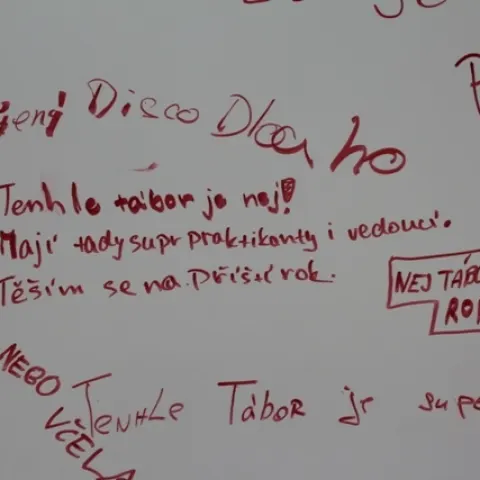 Disco Dlouho
Tenhle tábor je nej!
Mají tady supr praktikanty i vedoucí.
Těším se na příští rok.
NEJ TÁBO
RO
NEBO
VČEL
TENHLE TÁBOR je supe